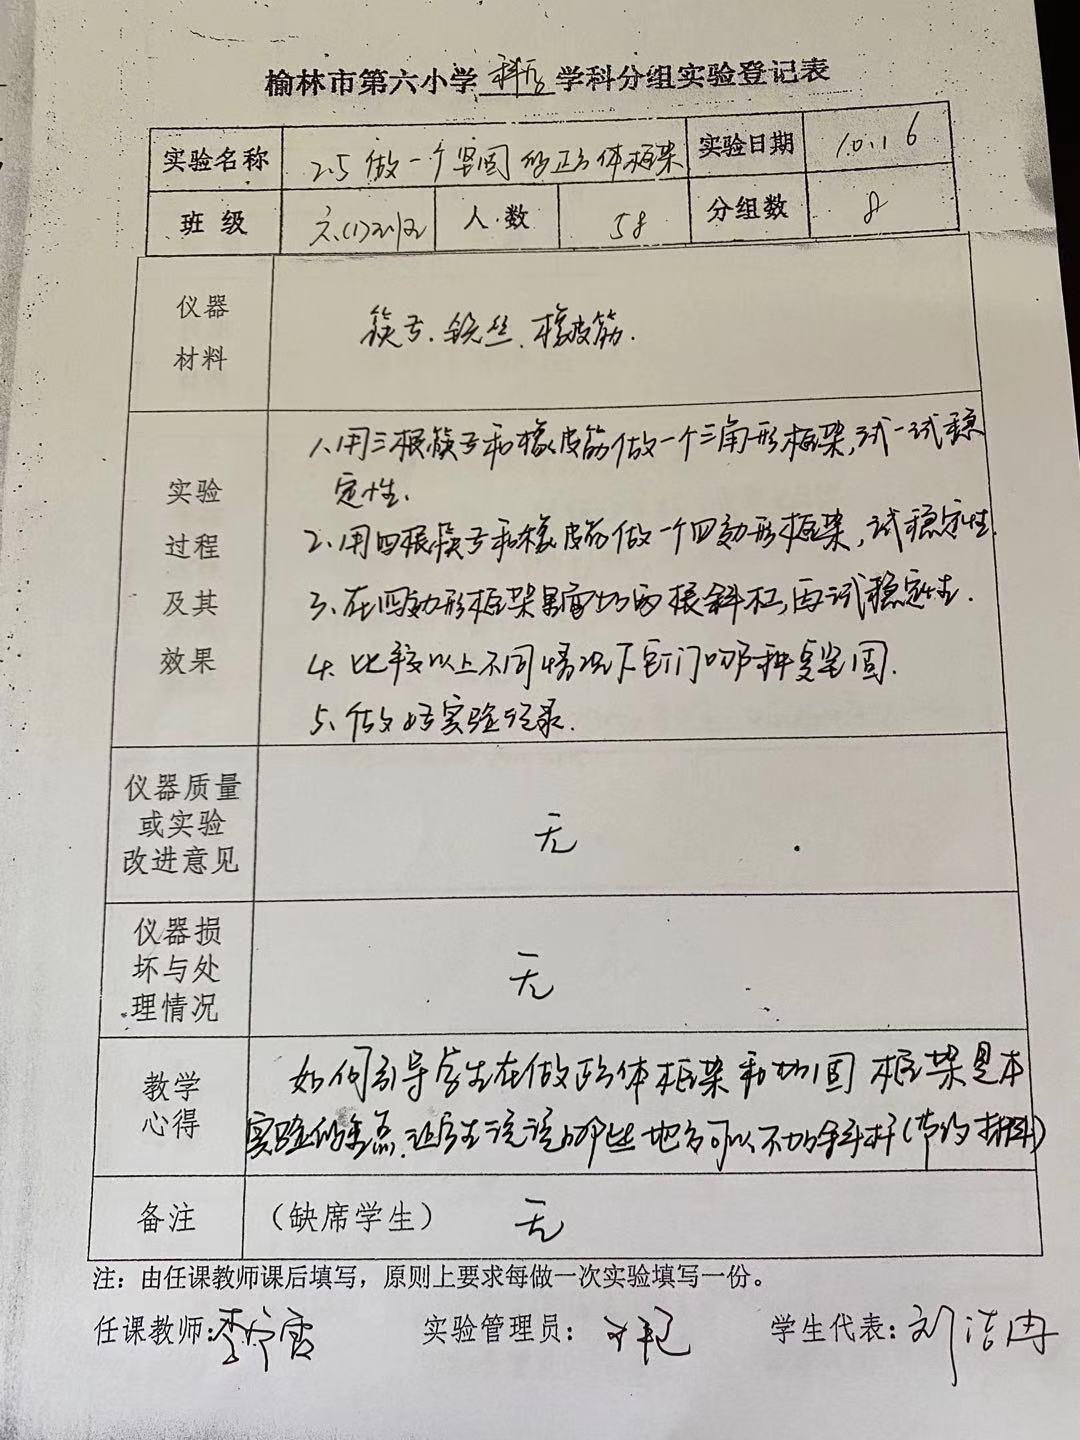 榆林市第六小学 科学 学科分组实验登记表
实验名称 2.5 做一个坚固的正方体框架 实验日期 10.16
班级 六(1)班 人数 58 分组数 8
仪器
材料
筷子、铁丝、橡皮筋.
实验
过程
及其
效果
1.用三根筷子和橡皮筋做一个三角形框架,试一试稳
定性.
2.用四根筷子和橡皮筋做一个四边形框架,试稳定性.
3.在四边形框架里面加两根斜杠,再试稳定性.
4.比较以上不同情况下它们哪种更坚固.
5.做好实验记录.
仪器质量
或实验
改进意见
无
仪器损
坏与处
理情况
无
教学
心得
如何引导学生在做正方体框架和加固框架是本
实验的重点.让学生说说哪些地方可以不加斜杆(节约材料)
备注 (缺席学生) 无
注：由任课教师课后填写，原则上要求每做一次实验填写一份。
任课教师: 李 霞 实验管理员： 学生代表: 刘洁冉